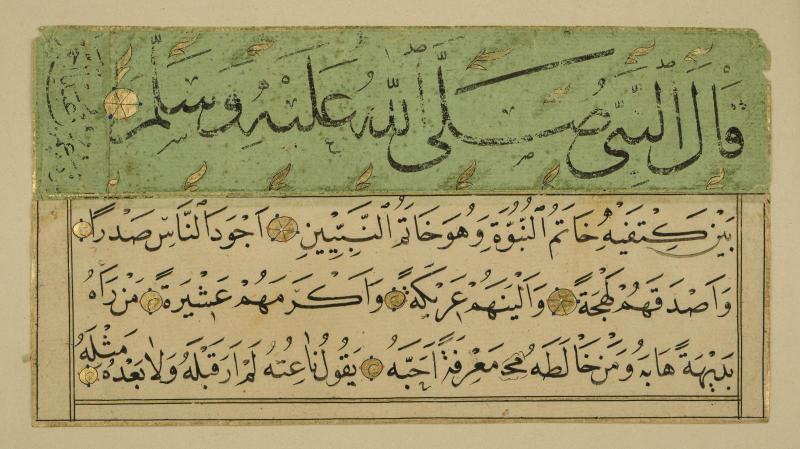 قَالَ النَّبِيُّ صَلَّى اللّٰهُ عَلَيْهِ وَسَلَّمَ
بَيْنَ كَتِفَيْهِ خَاتَمُ النُّبُوَّةِ وَهُوَ خَاتَمُ النَّبِيِّينَ اَجْوَدُ النَّاسِ صَدْرًا
وَاَصْدَقَهُمْ لَهْجَةً وَاَلْيَنَهُمْ عَرِيكَةً وَاَكْرَمَهُمْ عَشِيرَةً مَنْ رَاٰهُ
بَدِيهَةً هَابَهُ وَمَنْ خَالَطَهُ مَعْرِفَةً اَحَبَّهُ يَقُولُ نَاعِتُهُ لَمْ اَرَ قَبْلَهُ وَلَا بَعْدَهُ مِثْلَهُ